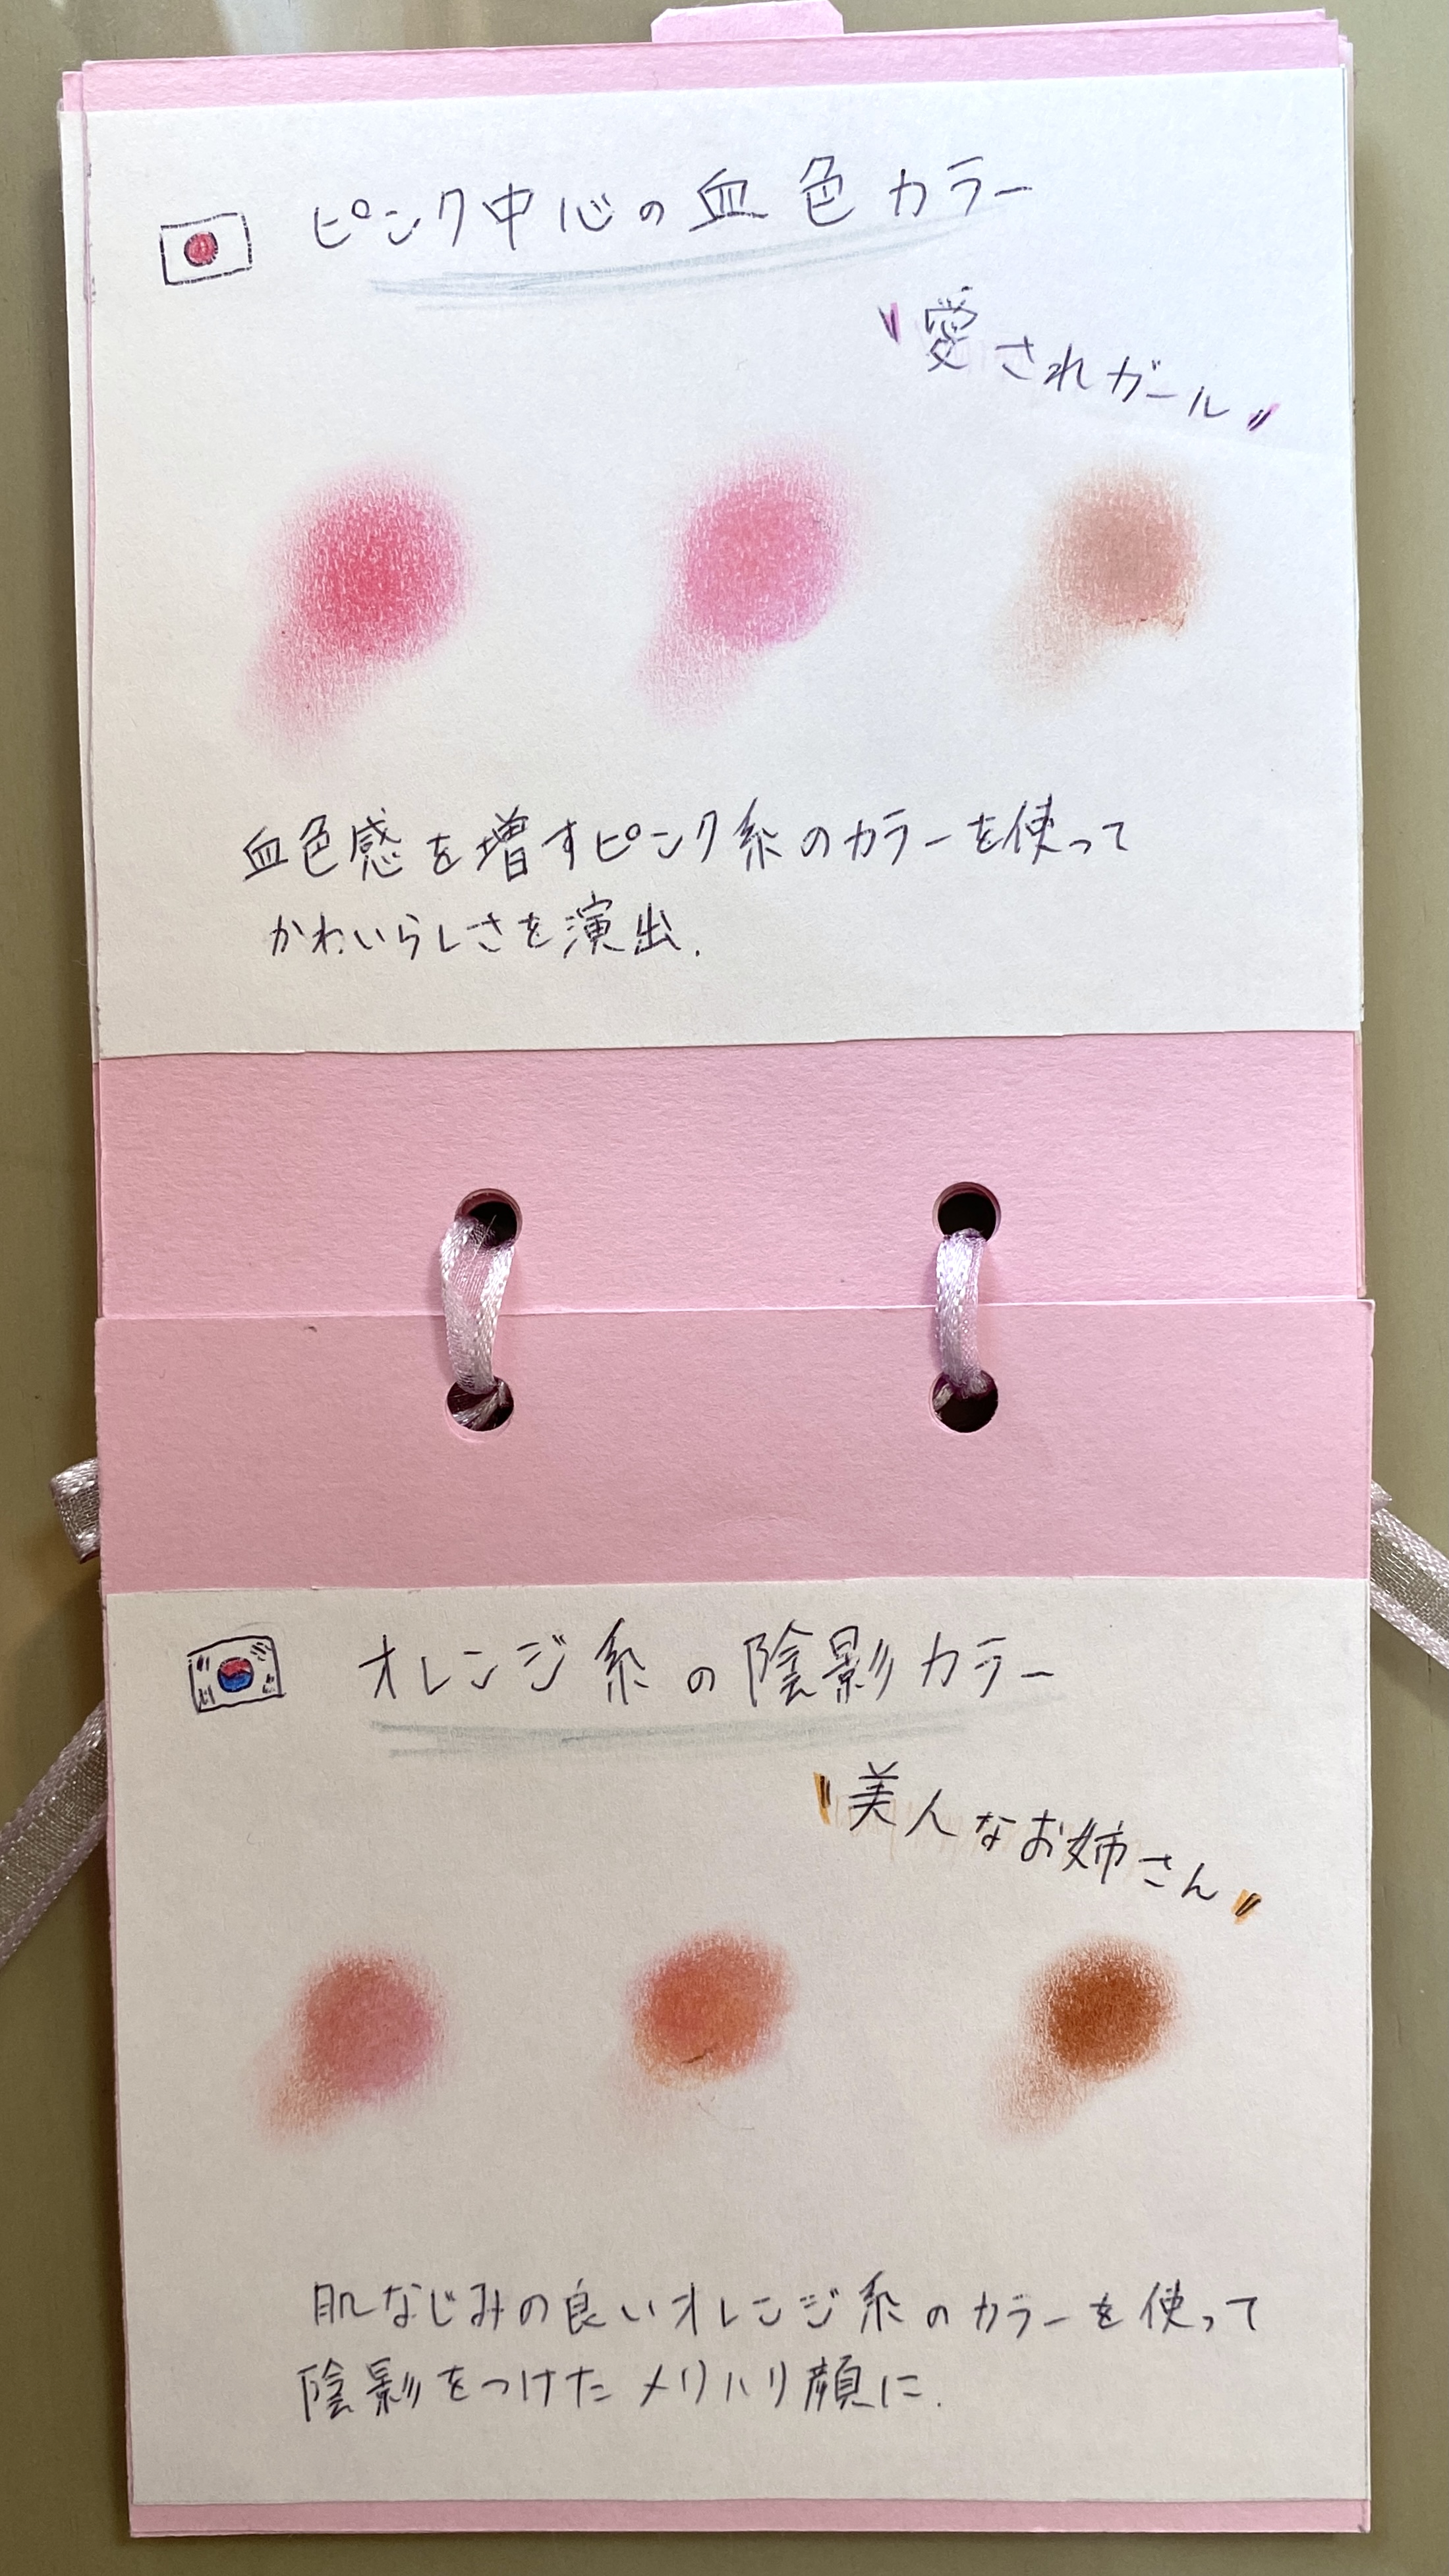 ピンク中心の血色カラー
"愛されガール"
血色感を増すピンク系のカラーを使って
かわいらしさを演出.
オレンジ系の陰影カラー
"美人なお姉さん"
肌なじみの良いオレンジ系のカラーを使って
陰影をつけたメリハリ顔に.